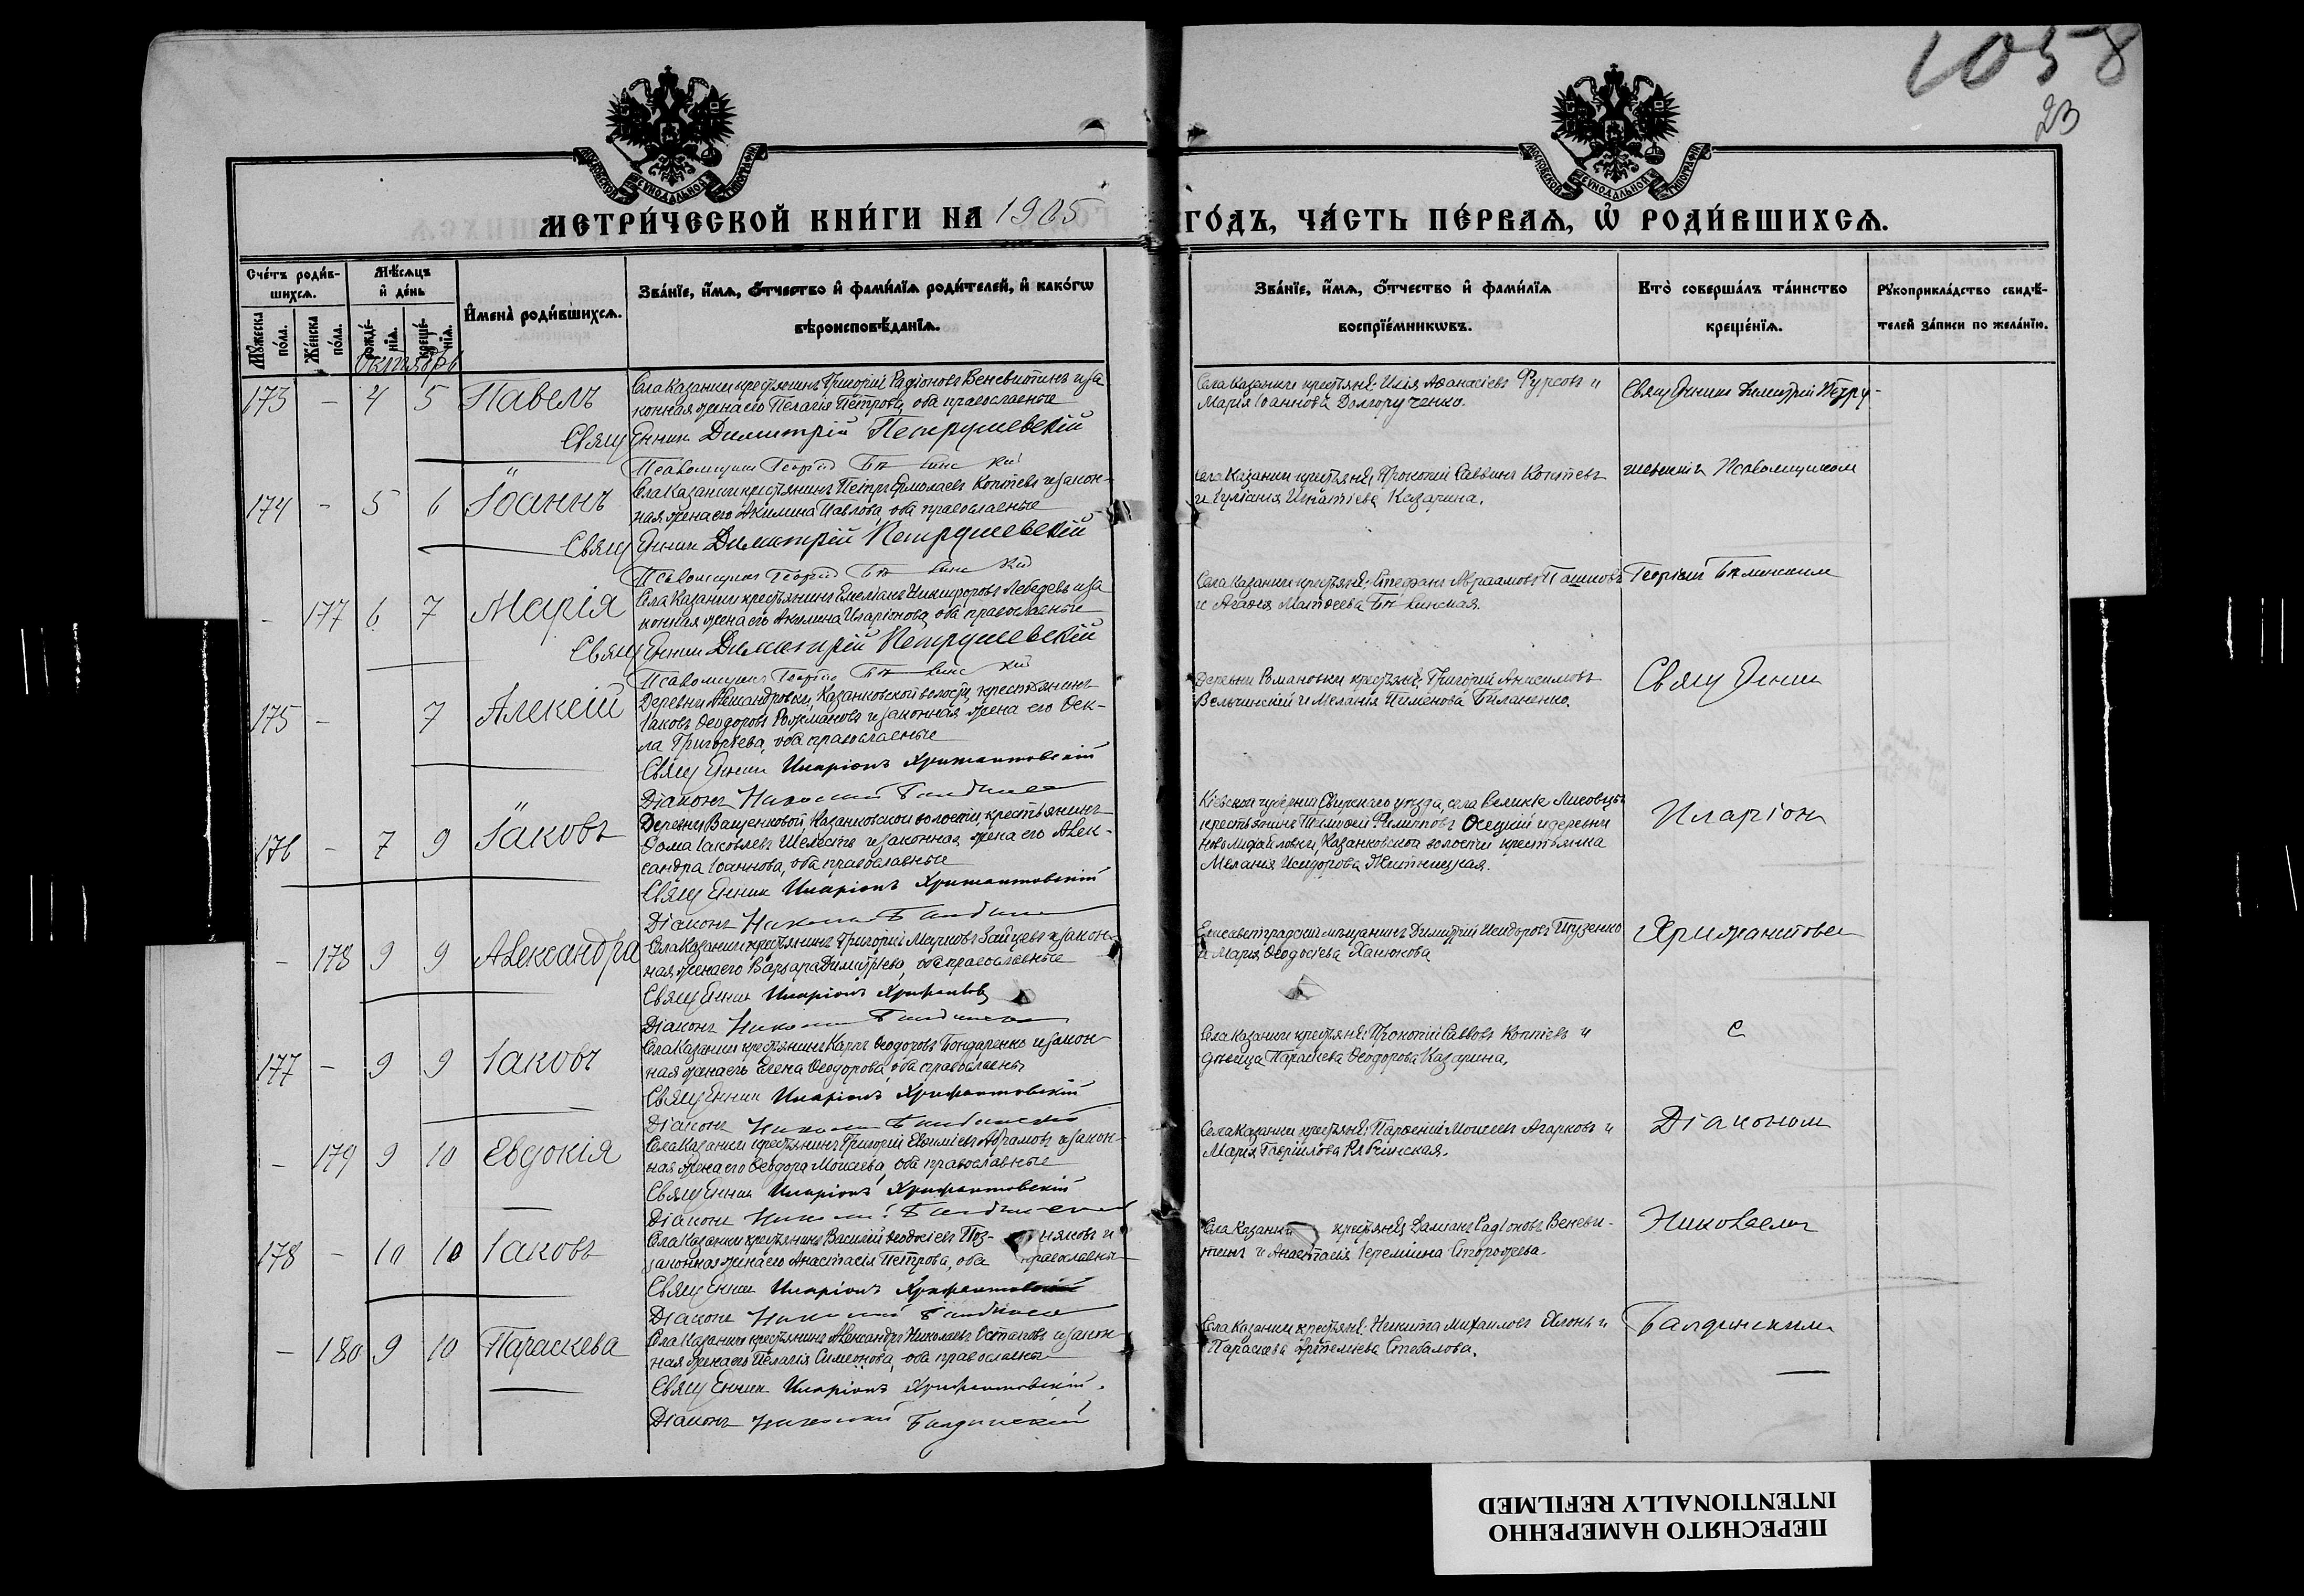 1058
23
МОСКОВСКОЙ СѴНОДАЛЬНОЙ ТИПОГРАФІИ
МОСКОВСКОЙ СѴНОДАЛЬНОЙ ТИПОГРАФІИ
МЕТРИ́ЧЕСКОЙ КНИ́ГИ НА 1905 ГО́ДЪ, ЧА́СТЬ ПЕ́РВАѦ, Ѡ҆ РОДИ́ВШИХСѦ.
Сче́тъ роди́в-
шихсѧ.
Мꙋ́жеска по́ла.
Же́нска по́ла.
Мѣ́сѧцъ
и҆ де́нь
рожде́-
нїѧ.
креще́-
нїѧ.
И҆мена̀ роди́вшихсѧ.
Зва́нїе, и҆́мѧ, ѻ҆́тчество и҆ фами́лїѧ роди́телей, и҆ како́гѡ
вѣроисповѣ́данїѧ.
Зва́нїе, и҆́мѧ, ѻ҆́тчество и҆ фами́лїѧ
воспрїе́мникѡвъ.
Кто̀ соверша́лъ та́инство
креще́нїѧ.
Рꙋкоприкла́дство свидѣ́-
телей за́писи по жела́нїю.
Октябрь
173 – 4 5 Павелъ
Села Казанки крестьянинъ Григорій Радіоновъ Веневитинъ и за
конная жена его Пелагія Петрова, оба православные
Священник Димитрій Петрушевскій
Псаломщикъ Георгій
Села Казанки крестьяне: Илія Аѳанасіевъ Фурсовъ и
Марія Іоаннова Долгорученко.
Священникъ Димитрій Петру-
174 – 5 6 Іоаннъ
Села Казанки крестьянинъ Петръ Ермолаевъ Коптевъ и закон-
ная жена его Акилина Павлова, оба православные
Священник Димитрій Петрушевскій
Псаломщикъ Георгій
Села Казанки крестьяне: Прокопій Саввинъ Коптевъ
и Іуліанія Игнатіева Казарина.
шевскій Псаломщиком
– 177 6 7 Марія
Села Казанки крестьянинъ Емеліанъ Никифоровъ Лебедевъ и за
конная жена его Акилина Иларіонова, оба православные
Священник Димитрій Петрушевскій
Псаломщикъ Георгій
Села Казанки крестьяне: Стефанъ Авраамовъ Пашковъ
и Агаѳія Матѳеева
Георгій
175 – 7 Алексій
Деревни Александровки, Казанковской волости, крестьянинъ
Іаковъ Ѳеодоровъ Рожмановъ и законная жена его Ѳек-
ла Григорьева, оба православные
Священник Иларіонъ Хрисантовскій
Діаконъ Николай
Деревни Романовки крестьяне: Григорій Анисимовъ
Вельчинскій и Меланія Пименова Биланенко.
Священник
176 – 7 9 Іаковъ
Деревни Ващенковой, Казанковской волости, крестьянинъ
Ѳома Іаковлевъ Шелестъ и законная жена его Алек-
сандра Іоаннова, оба православные
Священник Иларіонъ Хрисантовскій
Діаконъ Николай
Кіевской губерніи Звирскаго уезда, села Великіе Лисовцы
крестьянинъ Тимоѳей Филипповъ Осецкій и деревни
Новомихайловки, Казанковской волости крестьянка
Меланія Исидорова Житницкая.
Иларіон
– 178 9 9 Александра
Села Казанки крестьянинъ Григорій Марковъ Зайцевъ и закон-
ная жена его Варвара Димитріева, оба православные
Священник Иларіонъ
Діаконъ Николай
Елисаветградскій мѣщанинъ Димитрій Исидоровъ Пузенко
и Марія Ѳеодосіева Ханюкова
177 – 9 9 Іаковъ
Села Казанки крестьянинъ Карпъ Ѳеодоровъ Бондаренко и закон-
ная жена его Елена Ѳеодорова, оба православны
Священник Иларіонъ
Діаконъ Николай
Села Казанки крестьяне: Прокопій Саввовъ Коптевъ и
дѣвица Параскева Ѳеодорова Казарина.
– 179 9 10 Евдокія
Села Казанки крестьянинъ Григорій Евѳиміевъ Абрамовъ и закон-
ная жена его Ѳеодора Моисеева, оба православные
Священник Иларіонъ
Діаконъ Николай
Села Казанки крестьяне: Парѳеній Моисеевъ Агарковъ и
Марія Гавріилова Рябчинская.
Діаконом
178 – 10 10 Іаковъ
Села Казанки крестьянинъ Василій Ѳеодосіевъ Поз- няковъ и
законная жена его Анастасія Петрова, оба православны
Священник Иларіонъ
Діаконъ Николай
Села Казанки крестьяне: Даміанъ Радіоновъ Веневи-
тинъ и Анастасія Іереміина Сторожева.
Николаемъ
– 180 9 10 Параскева
Села Казанки крестьянинъ Александръ Николаевъ Остаповъ и закон-
ная жена его Пелагія Симеонова, оба православны
Священник Иларіонъ
Діаконъ Николай
Села Казанки крестьяне: Никита Михаиловъ и
Параскева Артеміева Стебалова.
Балдинским
ПЕРЕСНЯТО НАМЕРЕННО
INTENTIONALLY REFILMED